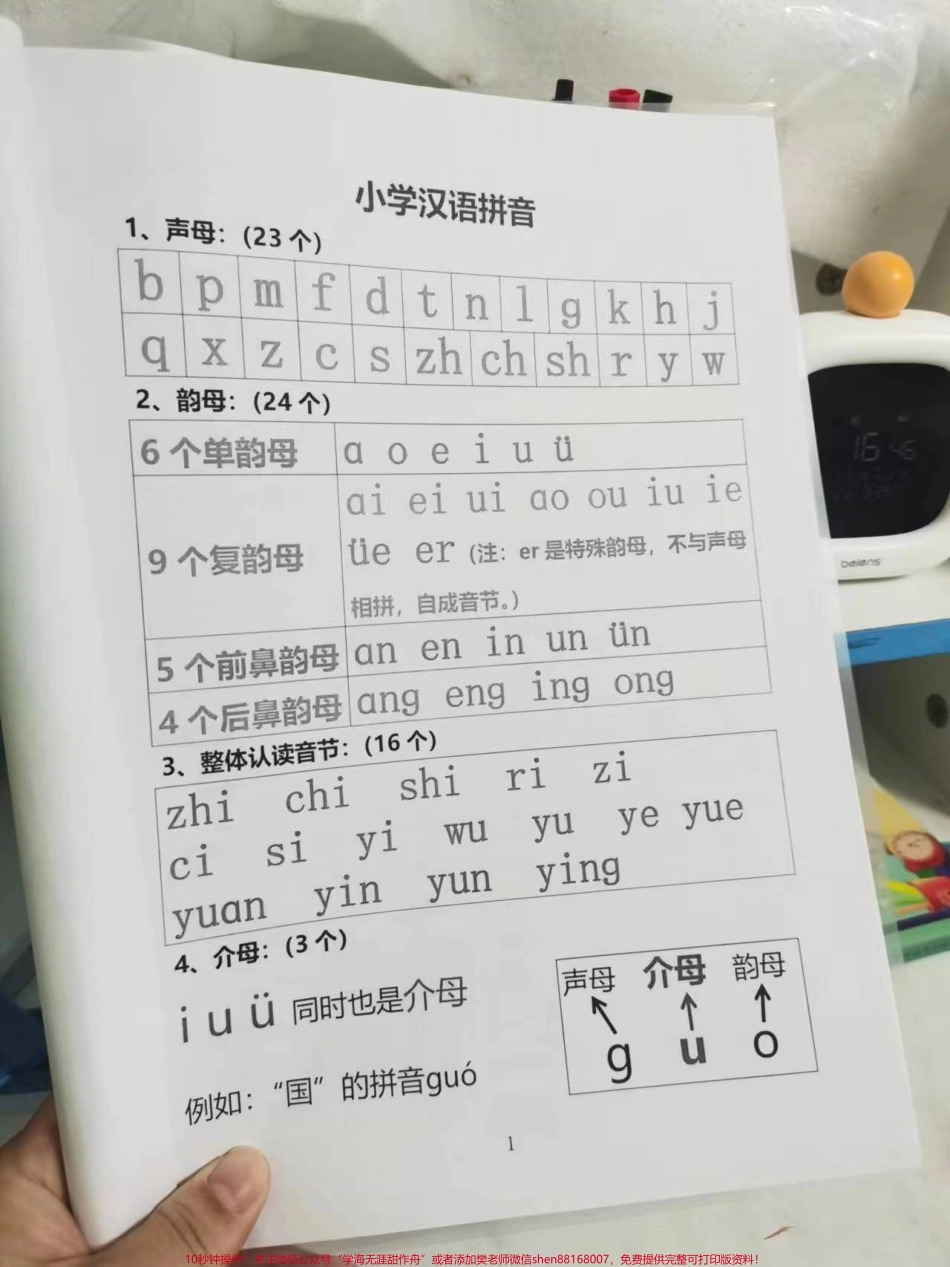 小学汉语拼音
1、声母：(23 个)
b p m f d t n l g k h j
q x z c s zh ch sh r y w
2、韵母：(24 个)
6 个单韵母 ɑ o e i u ü
9 个复韵母 ɑi ei ui ɑo ou iu ie
üe er (注：er 是特殊韵母，不与声母
相拼，自成音节。)
5 个前鼻韵母 ɑn en in un ün
4 个后鼻韵母 ɑng eng ing ong
3、整体认读音节：(16 个)
zhi chi shi ri zi
ci si yi wu yu ye yue
yuɑn yin yun ying
4、介母：(3 个)
i u ü 同时也是介母
例如：“国”的拼音guó
声母 介母 韵母
g u o
1
16 46
beiens
10秒钟操作！关注微信公众号“学海无涯甜作舟”或者添加樊老师微信shen88168007，免费提供完整可打印版资料！